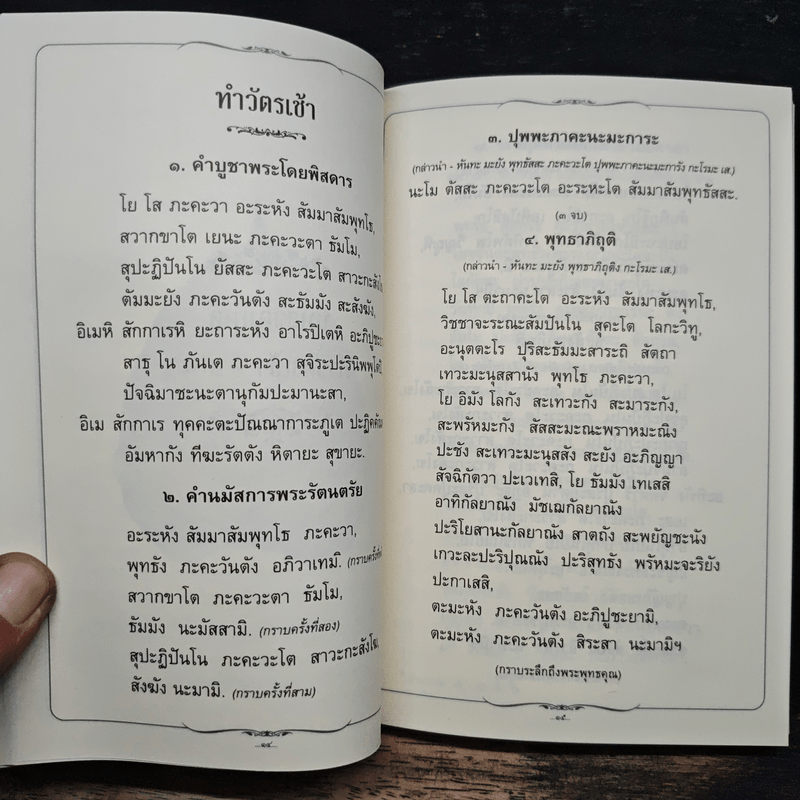 ทำวัตรเช้า
๑. คำบูชาพระโดยพิสดาร
โย โส ภะคะวา อะระหัง สัมมาสัมพุทโธ,
สวากขาโต เยนะ ภะคะวะตา ธัมโม,
สุปะฏิปันโน ยัสสะ ภะคะวะโต
ตัมมะยัง ภะคะวันตัง สะธัมมัง สะสังฆัง,
อิเมหิ สักกาเรหิ ยะถาระหัง อาโรปิเตหิ
สาธุ โน ภันเต ภะคะวา
ปัจฉิมาชะนะตานุกัมปะมานะสา,
อิเม สักกาเร ทุคคะตะปัณณาการะภูเต
อัมหากัง ทีฆะรัตตัง หิตายะ สุขายะ.
๒. คำนมัสการพระรัตนตรัย
อะระหัง สัมมาสัมพุทโธ ภะคะวา,
พุทธัง ภะคะวันตัง อภิวาเทมิ.
สวากขาโต ภะคะวะตา ธัมโม,
ธัมมัง นะมัสสามิ. (กราบครั้งที่สอง)
สุปะฏิปันโน ภะคะวะโต สาวะกะสังโฆ,
สังฆัง นะมามิ. (กราบครั้งที่สาม)
๑๔
๓. ปุพพะภาคะนะมะการะ
(กล่าวนำ - หันทะ มะยัง พุทธัสสะ ภะคะวะโต ปุพพะภาคะนะมะการัง กะโรมะ เส.)
นะโม ตัสสะ ภะคะวะโต อะระหะโต สัมมาสัมพุทธัสสะ.
(๓ จบ)
๔. พุทธาภิถุติ
(กล่าวนำ - หันทะ มะยัง พุทธาภิถุติง กะโรมะ เส.)
โย โส ตะถาคะโต อะระหัง สัมมาสัมพุทโธ,
วิชชาจะระณะสัมปันโน สุคะโต โลกะวิทู,
อะนุตตะโร ปุริสะธัมมะสาระถิ สัตถา
เทวะมะนุสสานัง พุทโธ ภะคะวา,
โย อิมัง โลกัง สะเทวะกัง สะมาระกัง,
สะพรัหมะกัง สัสสะมะณะพราหมะณิง
ปะชัง สะเทวะมะนุสสัง สะยัง อะภิญญา
สัจฉิกัตวา ปะเวเทสิ, โย ธัมมัง เทเสสิ
อาทิกัลยาณัง มัชเฌกัลยาณัง
ปะริโยสานะกัลยาณัง สาตถัง สะพยัญชะนัง
เกวะละปะริปุณณัง ปะริสุทธัง พรัหมะจะริยัง
ปะกาเสสิ,
ตะมะหัง ภะคะวันตัง อะภิปูชะยามิ,
ตะมะหัง ภะคะวันตัง สิระสา นะมามิฯ
(กราบระลึกถึงพระพุทธคุณ)
๑๕